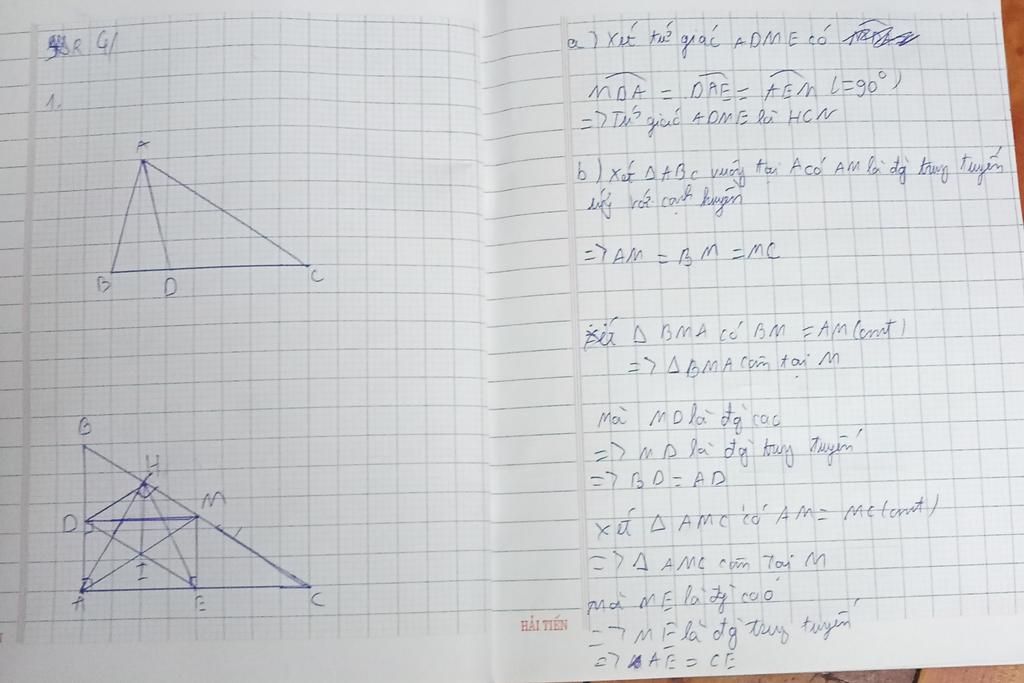 1.
A
B
D
C
B
H
D
M
I
A
E
C
HẢI TIẾN
a) Xét tứ giác ADME có
MDA = DAE = AEM (=90°)
=> Tứ giác ADME là HCN
b) Xét Δ ABC vuông tại A có AM là đg trung tuyến
ứng với cạnh huyền
=> AM = BM = MC
Xét Δ BMA có BM = AM (cmt)
=> Δ BMA cân tại M
Mà MD là đg cao
=> MD là đg trung tuyến
=> BD = AD
Xét Δ AMC có AM = MC (cmt)
=> Δ AMC cân tại M
Mà ME là đg cao
=> ME là đg trung tuyến
=> AE = CE